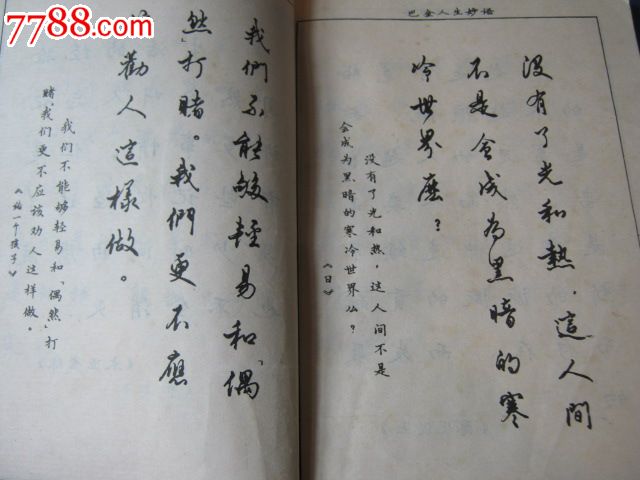 7788.com
巴金人生妙语
没有了光和熱，這人間
不是會成為黑暗的寒
冷世界麽？
没有了光和热，这人间不是
会成为黑暗的寒冷世界么？
《日》
我們不能够輕易和“偶
然”打賭。我們更不應
該勸人這樣做。
我们不能够轻易和“偶然”打
赌，我们更不应该劝人这样做。
《给一个孩子》